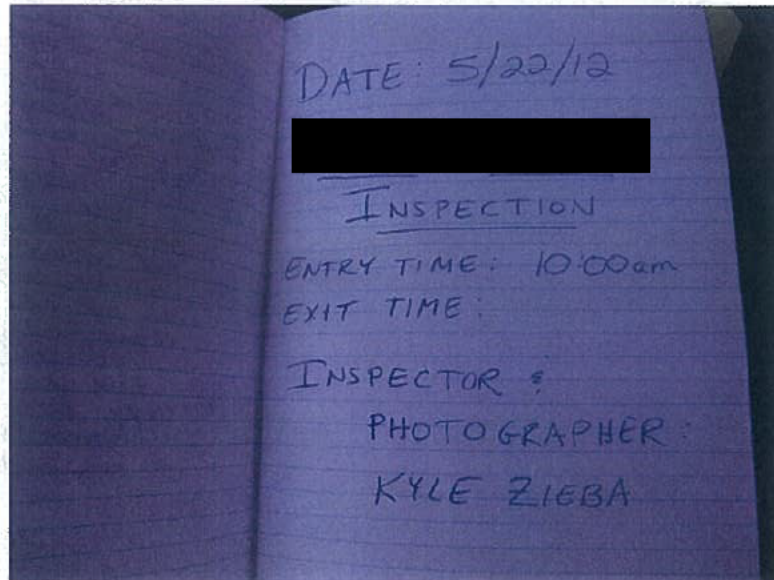 DATE: 5/22/12
INSPECTION
ENTRY TIME: 10:00am
EXIT TIME:
INSPECTOR &
PHOTOGRAPHER:
KYLE ZIEBA